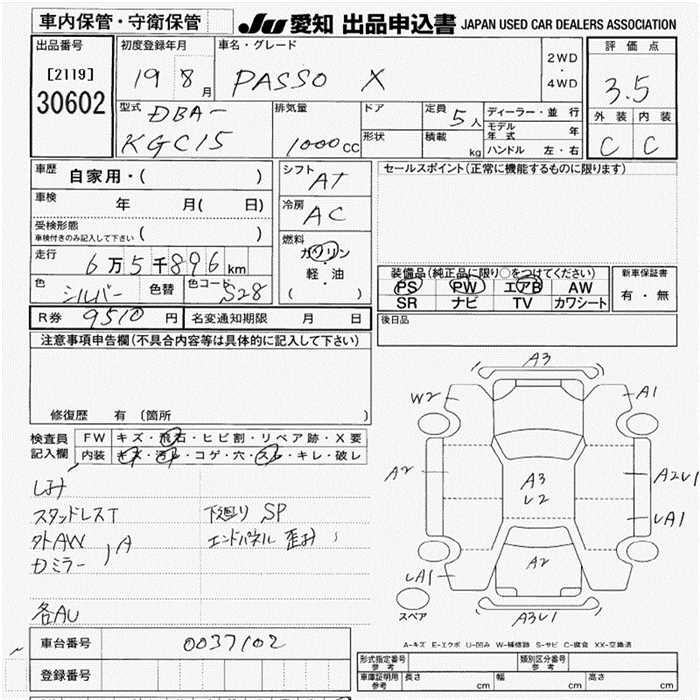 車内保管・守衛保管
JU 愛知 出品申込書 JAPAN USED CAR DEALERS ASSOCIATION
出品番号
[2119]
30602
初度登録年月
19 8月
車名・グレード
PASSO X
2WD
・
4WD
評価点
3.5
外装 内装
C C
型式
DBA-
KGC15
排気量
1000cc
ドア
形状
定員 5人
積載 kg
ディーラー・並行
モデル年式 年
ハンドル 左・右
車歴
自家用・( )
車検
年 月( 日)
受検形態
車検付きのみ記入して下さい ( )
走行
6万5千896km
色 シルバー 色替 色コード S28
シフト
AT
冷房
AC
燃料
ガソリン
・
軽・油
( )
セールスポイント(正常に機能するものに限ります)
装備品(純正品に限り○をつけてください)
PS PW エアB AW
SR ナビ TV カワシート
新車保証書
有・無
R券 9510円 名変通知期限 月 日
後日品
注意事項申告欄(不具合内容等は具体的に記入して下さい)
修復歴 有 〔箇所 〕
検査員記入欄
FW キズ・飛石・ヒビ割・リペア跡・X要
内装 キズ・汚れ・コゲ・穴・スレ・キレ・破レ
しみ
スタッドレスT 下廻り SP
外AW エンドパネル 歪み
ドミラー A
各AU
A3
W2 A1
A2 A3 A2U1
U2
UA1
A2
UA1
A3U1
スペア
A-キズ E-エクボ U-凹み W-補修跡 S-サビ C-腐食 XX-交換済
車台番号 0037102
登録番号
形式指定番号 参考
類別区分番号 参考
車庫証明用 参考 長さ cm 幅 cm 高さ cm